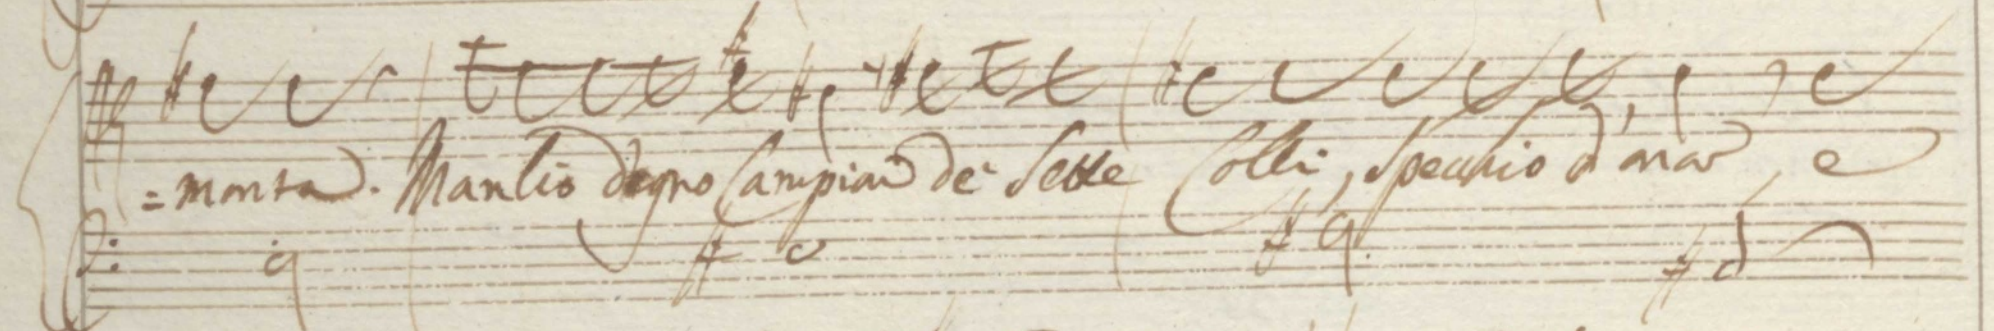 = monta. Manlio degno Campion de Sette Colli, Specchio d'onor, e